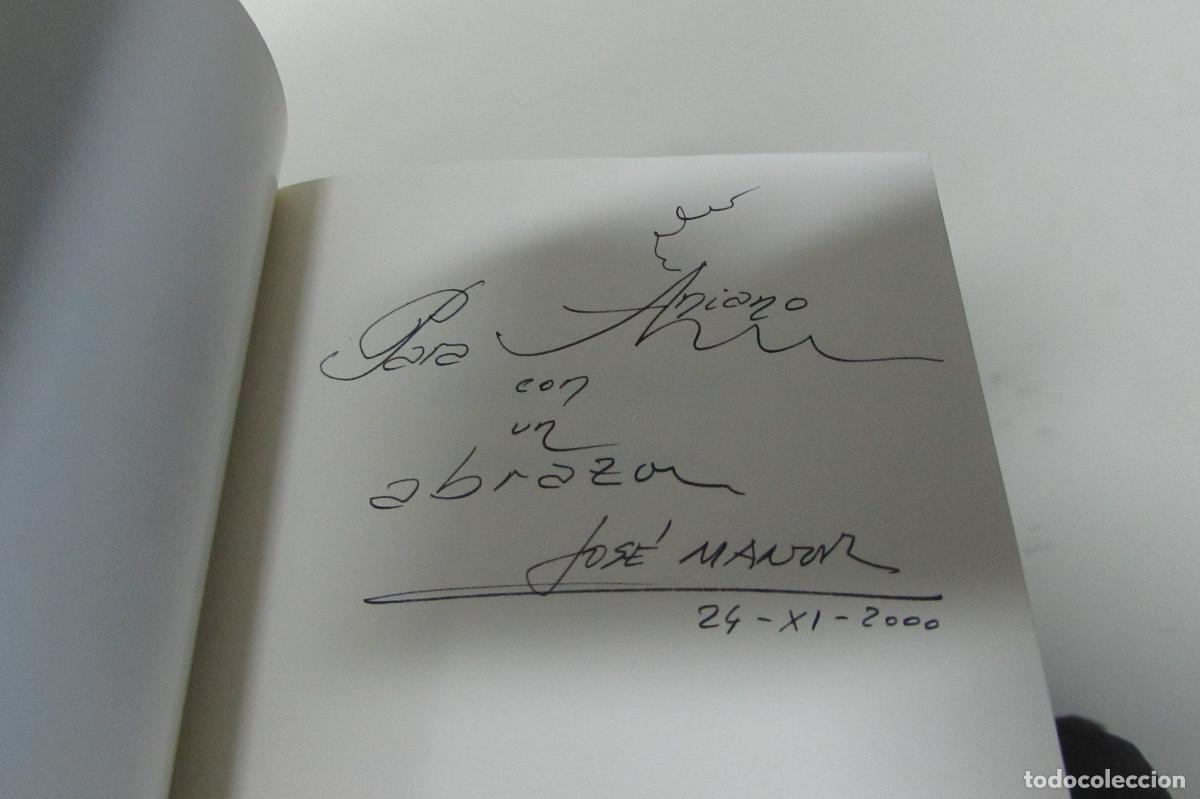 Para Aniano
con
un
abrazo
JOSÉ
24-XI-2000
todocoleccion